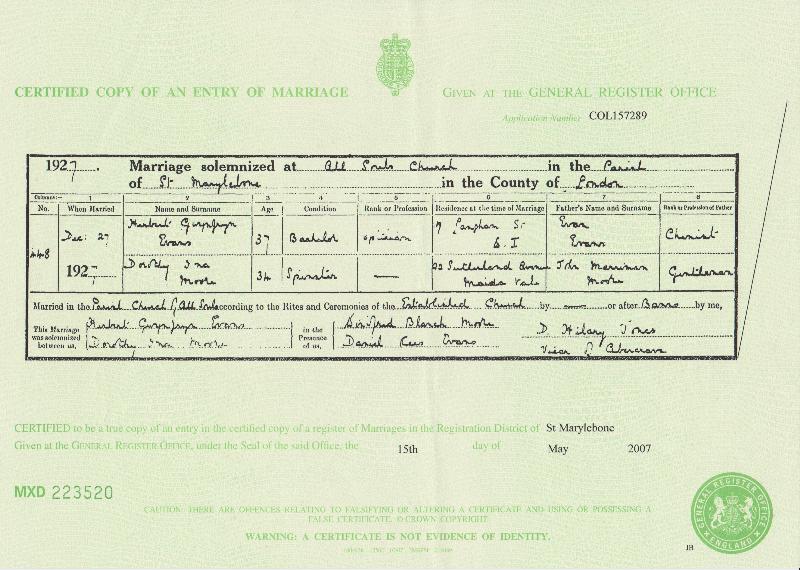 CERTIFIED COPY OF AN ENTRY OF MARRIAGE
GIVEN AT THE GENERAL REGISTER OFFICE
Application Number COL157289
1927. Marriage solemnized at All Souls Church in the Parish
of St Marylebone in the County of London
Columns:— 1 2 3 4 5 6 7 8
No. When Married Name and Surname Age Condition Rank or Profession Residence at the time of Marriage Father's Name and Surname Rank or Profession of Father
448 Dec: 27 1927 Herbert Gwynfryn Evans 37 Bachelor optician 7 Langham St Evan Evans Chemist
Dorothy Ina Moore 34 Spinster — 92 Sutherland Avenue Maida Vale John Merriman Moore Gentleman
Married in the Parish Church of All Souls according to the Rites and Ceremonies of the Established Church by —— or after Banns by me,
This Marriage was solemnized between us, Herbert Gwynfryn Evans Dorothy Ina Moore in the Presence of us, Winifred Blanch Moore Daniel Rees Evans D. Hilary Jones Vicar of Abercrave
CERTIFIED to be a true copy of an entry in the certified copy of a register of Marriages in the Registration District of St Marylebone
Given at the GENERAL REGISTER OFFICE, under the Seal of the said Office, the 15th day of May 2007
MXD 223520
CAUTION: THERE ARE OFFENCES RELATING TO FALSIFYING OR ALTERING A CERTIFICATE AND USING OR POSSESSING A
FALSE CERTIFICATE. © CROWN COPYRIGHT
WARNING: A CERTIFICATE IS NOT EVIDENCE OF IDENTITY.
GENERAL REGISTER OFFICE
ENGLAND
JB